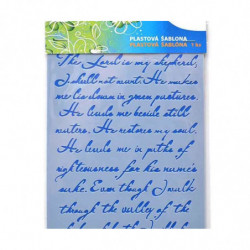 PLASTOVÁ ŠABLÓNA
PLASTOVÁ ŠABLONA 1 ks
The Lord is my shepherd,
I shall not want. He makes
me lie down in green pastures.
He leads me beside still
waters. He restores my soul.
He leads me in paths of
righteousness for his name's
sake. Even though I walk
through the valley of the